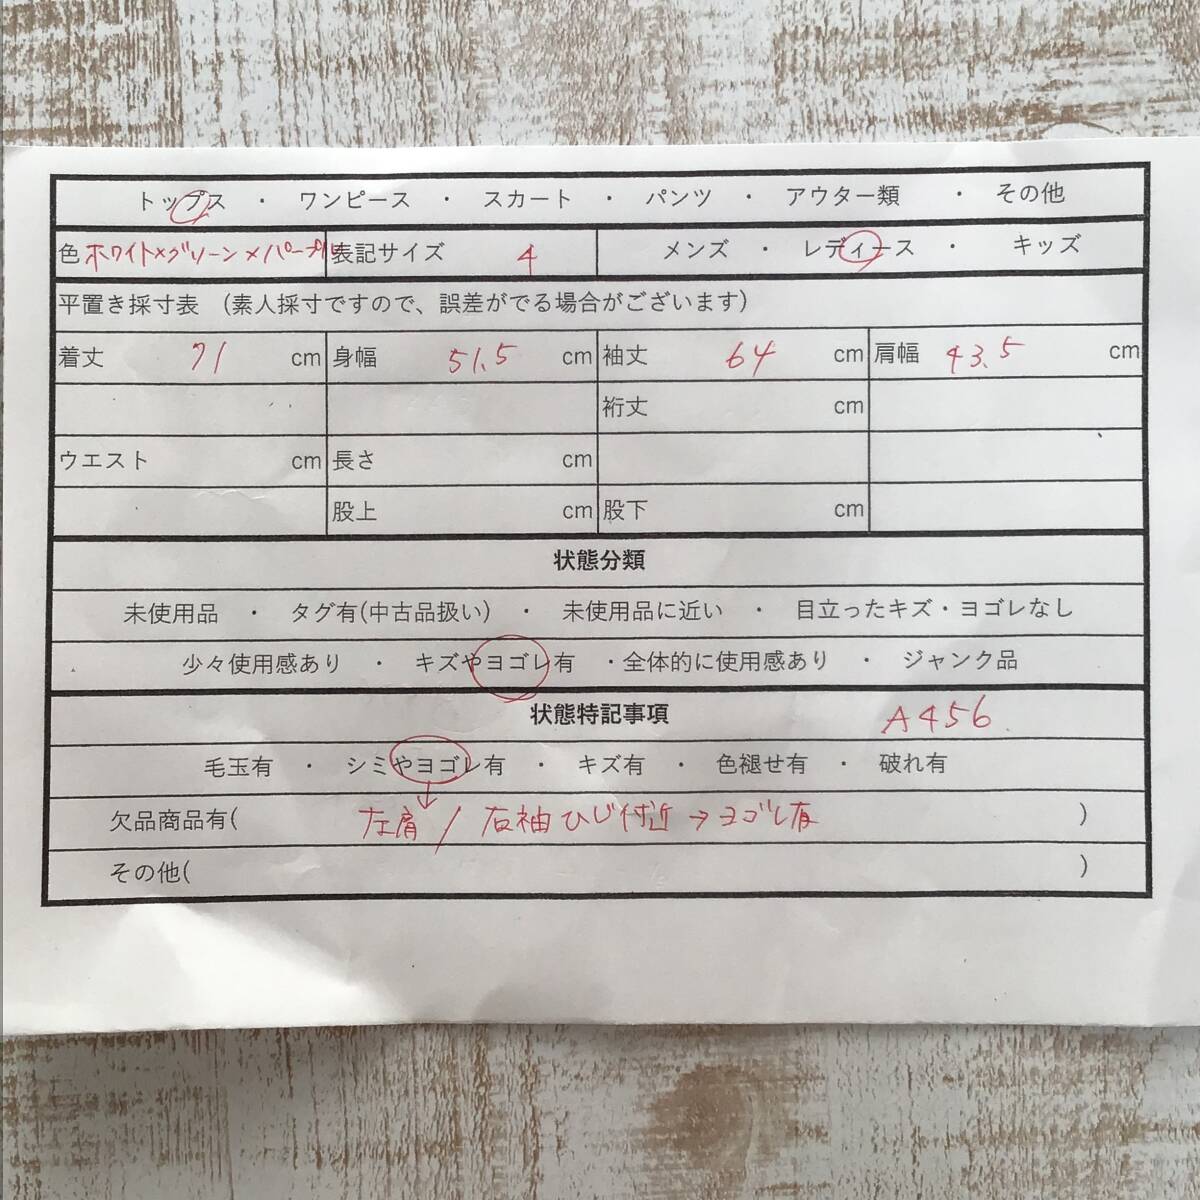 トップス ・ ワンピース ・ スカート ・ パンツ ・ アウター類 ・ その他
色 ホワイト×グリーン×パープル 表記サイズ 4 メンズ ・ レディース ・ キッズ
平置き採寸表 (素人採寸ですので、誤差がでる場合がございます)
着丈 71 cm 身幅 51.5 cm 袖丈 64 cm 肩幅 43.5 cm
裄丈 cm
ウエスト cm 長さ cm
股上 cm 股下 cm
状態分類
未使用品 ・ タグ有(中古品扱い) ・ 未使用品に近い ・ 目立ったキズ・ヨゴレなし
少々使用感あり ・ キズやヨゴレ有 ・全体的に使用感あり ・ ジャンク品
状態特記事項 A456
毛玉有 ・ シミやヨゴレ有 ・ キズ有 ・ 色褪せ有 ・ 破れ有
欠品商品有( 左肩 / 右袖ひじ付近→ヨゴレ有 )
その他( )